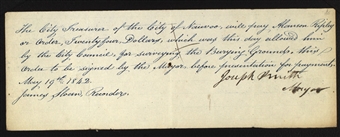 The City Treasurer of the City of Nauvoo, will pay Alanson Ripley
or Order, Twentyfour, Dollars, which was this day allowed him
by the City Council, for surveying the Burying Grounds, this
Order to be signed by the Mayor, before presentation for payment.
May 19th. 1842.
James Sloan Recorder.
Joseph Smith
Mayor